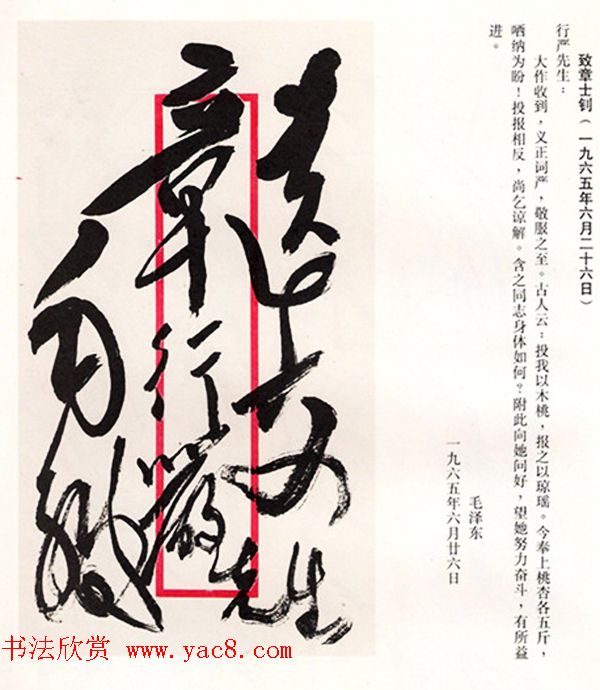 致章士钊(一九六五年六月二十六日)
行严先生:
大作收到,义正词严,敬服之至。古人云:投我以木桃,报之以琼瑶。今奉上桃杏各五斤,
哂纳为盼!投报相反,尚乞谅解。含之同志身体如何?附此向她问好,望她努力奋斗,有所益
进。
毛泽东
一九六五年六月廿六日
章行嚴先生
毛缄
书法欣赏 www.yac8.com